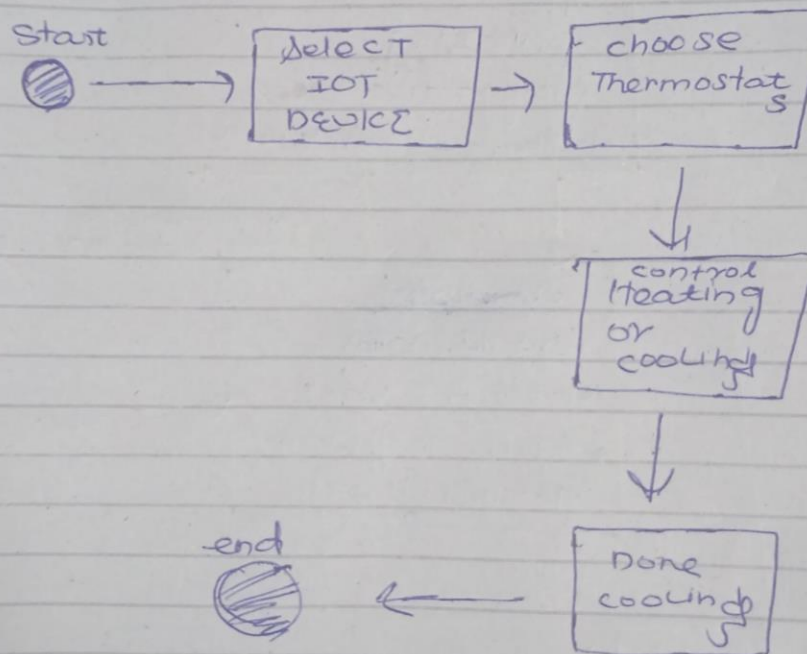 Start
Select
IOT
DEVICE
choose
Thermostat
s
control
Heating
or
cooling
end
Done
cooling